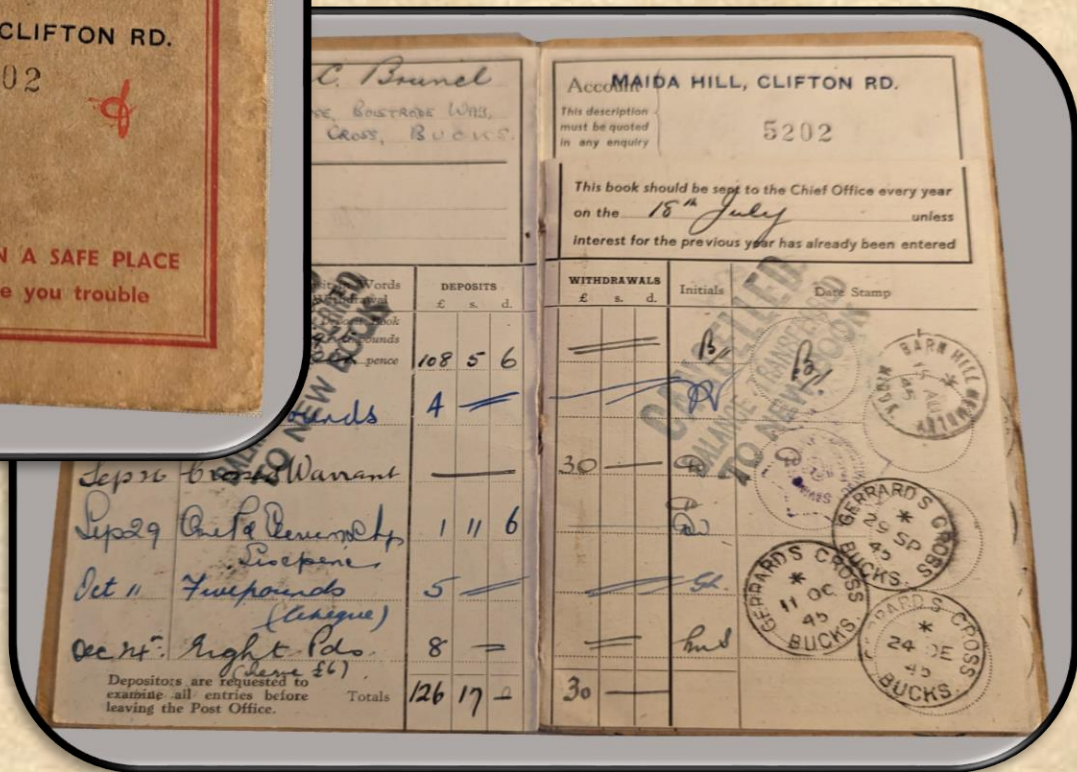 CLIFTON RD.
02
N A SAFE PLACE
e you trouble
C. Brunel
SE, BULSTRODE WAY,
CROSS, BUCKS.
Account MAIDA HILL, CLIFTON RD.
This description
must be quoted
in any enquiry
5202
This book should be sent to the Chief Office every year
on the 18th July unless
interest for the previous year has already been entered
Words
Withdrawal
DEPOSITS
£ s. d.
WITHDRAWALS
£ s. d.
Initials
Date Stamp
Book
pounds
pence 108 5 6
ounds 4
Sep 26 Crossed Warrant 30
Sep 29 One Pd Eleven Sh/ 1 11 6
Sixpence
Oct 11 Five pounds 5
(Cheque)
Dec 24 Eight Pds. 8
(Leave £6)
Depositors are requested to
examine all entries before
leaving the Post Office.
Totals 126 17 - 30
CANCELLED
BALANCE TRANSFERRED
TO NEW BOOK
TO NEW BOOK
BARN HILL WEMBLEY
AU
45
GERRARDS CROSS
29 SP
45
BUCKS.
GERRARDS CROSS
11 OC
45
BUCKS
GERRARDS CROSS
24 DE
45
BUCKS.